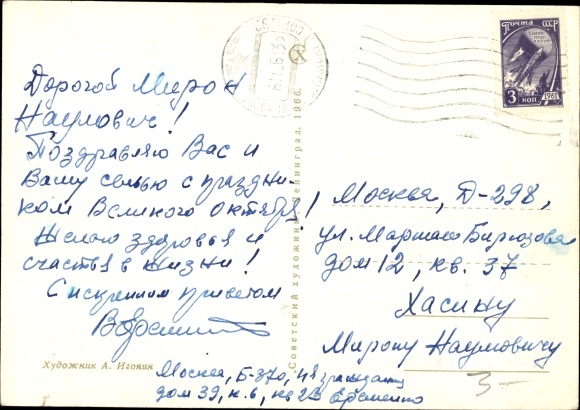 Дорогой Мирон
Наумович!
Поздравляю Вас и
Вашу семью с праздни-
ком Великого Октября!
Желаю здоровья и
счастья в жизни!
С искренним приветом
Художник А. Игонин
Советский художник Ленинград. 1966.
ПОЧТА СССР
3 КОП
1961
Москва, Д-298,
ул. Маршала Бирюзова
дом 12, кв. 37
Хасину
Мирону Наумовичу
3-
Москва, Б-370,
дом 39, к.6, кв Ефременко